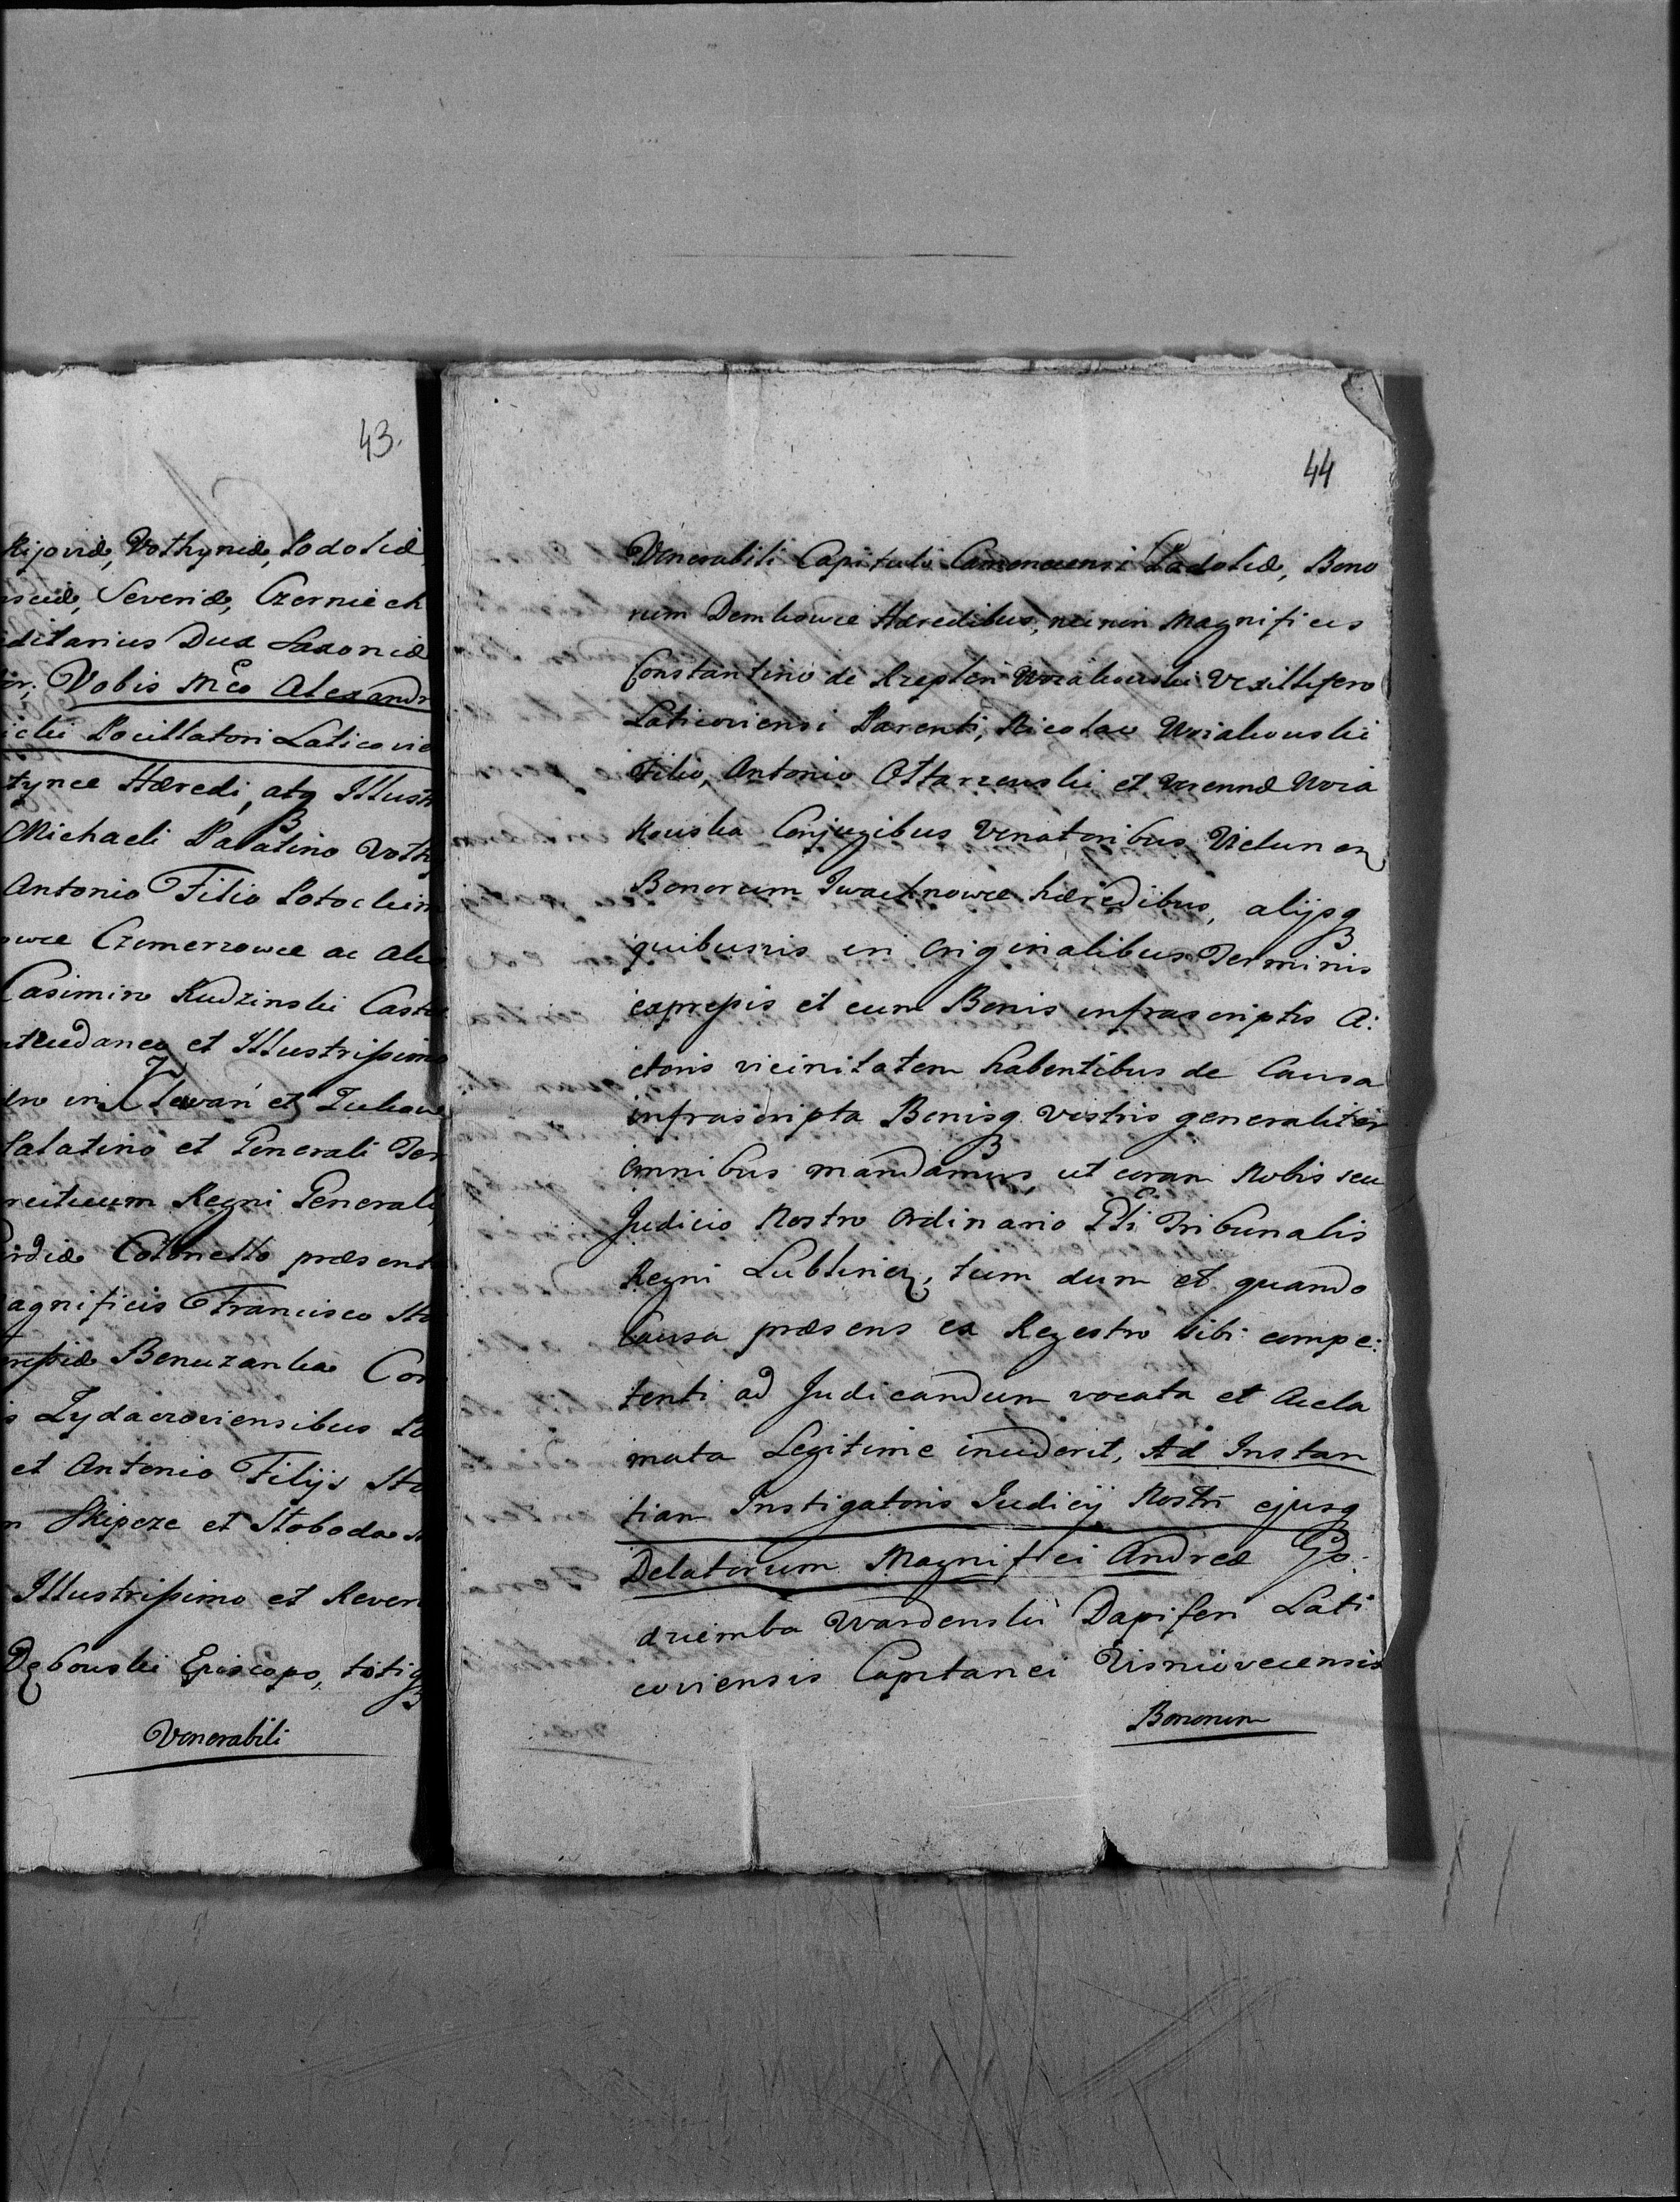 43.
Kijoviæ, Volhyniæ, Podoliæ,
Severiæ, Czerniech
ditarius Dux Saxoniæ
Vobis Mco Alexandr
Pocillatori Laticovie
Hæredi, atq Illustr
Michaeli Palatino Volh
Antonio Filio Potockim
Czemerzowce ac
Casimiro Rudzinski Caste
et Illustrissimo
in et
Palatino et Generali Ter
Regni Generali
Colonello præsent
agnificis Francisco Sta
Benuzanka Con
Zydaczoviensibus
et Antonio Filijs Sta
Skipcze et Sloboda
Illustrissimo et Reveren
Dębouski Episcopo, totiq
Venerabili
44
Venerabili Capitulo Camenecensi Podoliæ, Bono
rum Dembowce Hæredibus, nec non Magnificis
Constantino de Krepsten Woiakouski Vexillifero
Laticoviensi Parenti, Nicolao Woiakouski
Filio, Antonio Ottarzewski et Woia
kouska Conjugibus Venatoribus Vielunen
Bonorum Iwachnowce hæredibus, alijsq
quibusvis in originalibus Terminis
expressis et cum Bonis infrascriptis A:
ctoris vicinitatem habentibus de Causa
infrascripta Bonisq vestris generaliter
omnibus mandamus, ut coram Nobis seu
Judicio Nostro Ordinario Gli Tribunalis
Regni Lublinen, tum dum et quando
Causa præsens ex Regestro sibi compe:
tenti ad Judicandum vocata et Accla
mata Legitime inciderit, Ad Instan
tiam Instigatoris Judicij Nostri ejusq
Delatorum Magnifici Andreæ Go:
dziemba Wardenski Dapiferi Lati
coviensis Capitanei Visniovecensis
Bonorum